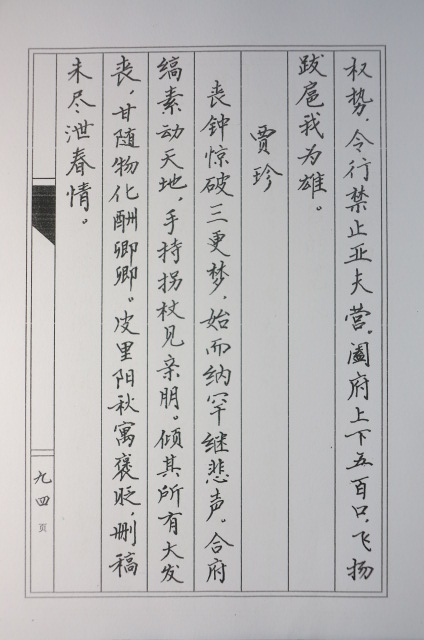 权势，令行禁止亚夫营。阖府上下五百口，飞扬
跋扈我为雄。
贾珍
丧钟惊破三更梦，始而纳罕继悲声。合府
缟素动天地，手持拐杖见亲朋。倾其所有大发
丧，甘随物化酬卿卿。皮里阳秋寓褒贬，删稿
未尽泄春情。
九四
页